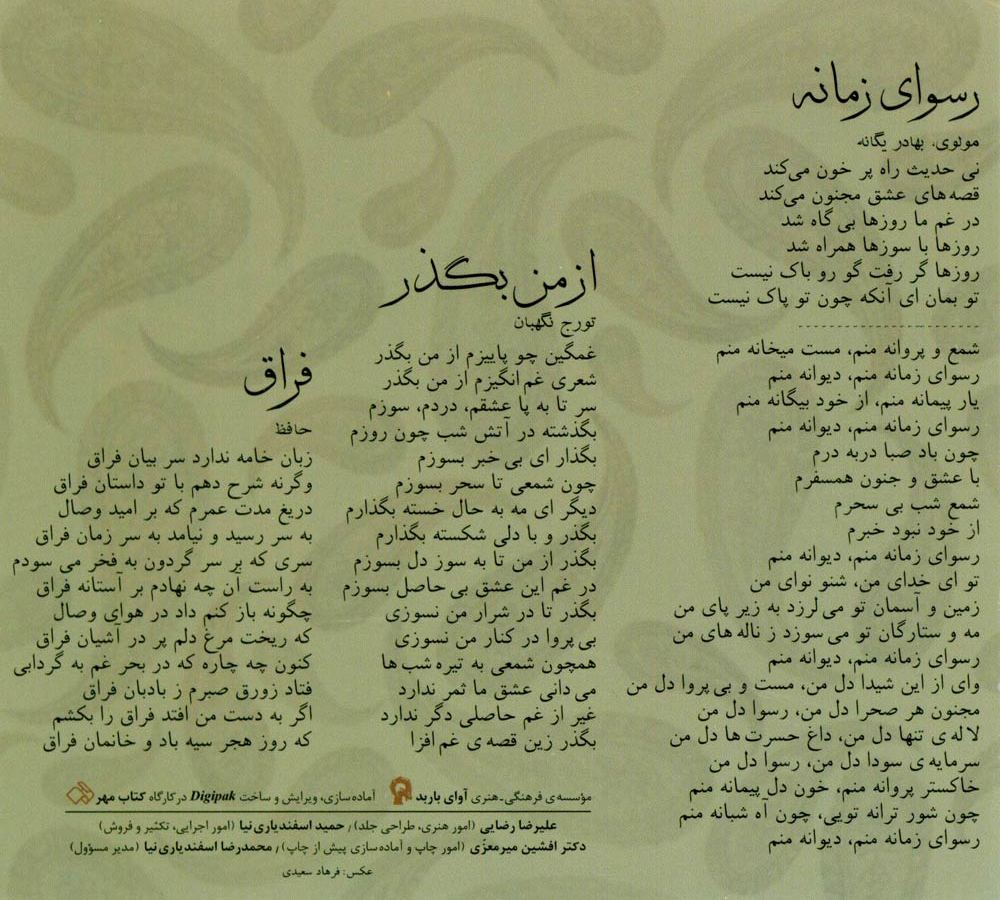 رسوای زمانه
مولوی، بهادر یگانه
نی حدیث راه پر خون می‌کند
قصه‌های عشق مجنون می‌کند
در غم ما روزها بی گاه شد
روزها با سوزها همراه شد
روزها گر رفت گو رو باک نیست
تو بمان ای آنکه چون تو پاک نیست
شمع و پروانه منم، مست میخانه منم
رسوای زمانه منم، دیوانه منم
یار پیمانه منم، از خود بیگانه منم
رسوای زمانه منم، دیوانه منم
چون باد صبا دربه درم
با عشق و جنون همسفرم
شمع شب بی سحرم
از خود نبود خبرم
رسوای زمانه منم، دیوانه منم
تو ای خدای من، شنو نوای من
زمین و آسمان تو می لرزد به زیر پای من
مه و ستارگان تو می سوزد ز ناله های من
رسوای زمانه منم، دیوانه منم
وای از این شیدا دل من، مست و بی پروا دل من
مجنون هر صحرا دل من، رسوا دل من
لاله ی تنها دل من، داغ حسرت ها دل من
سرمایه ی سودا دل من، رسوا دل من
خاکستر پروانه منم، خون دل پیمانه منم
چون شور ترانه تویی، چون آه شبانه منم
رسوای زمانه منم، دیوانه منم
از من بگذر
تورج نگهبان
غمگین چو پاییزم از من بگذر
شعری غم انگیزم از من بگذر
سر تا به پا عشقم، دردم، سوزم
بگذشته در آتش شب چون روزم
بگذار ای بی خبر بسوزم
چون شمعی تا سحر بسوزم
دیگر ای مه به حال خسته بگذارم
بگذر و با دلی شکسته بگذارم
بگذر از من تا به سوز دل بسوزم
در غم این عشق بی حاصل بسوزم
بگذر تا در شرار من نسوزی
بی پروا در کنار من نسوزی
همچون شمعی به تیره شب ها
می دانی عشق ما ثمر ندارد
غیر از غم حاصلی دگر ندارد
بگذر زین قصه ی غم افزا
فراق
حافظ
زبان خامه ندارد سر بیان فراق
وگرنه شرح دهم با تو داستان فراق
دریغ مدت عمرم که بر امید وصال
به سر رسید و نیامد به سر زمان فراق
سری که بر سر گردون به فخر می سودم
به راست آن چه نهادم بر آستانه فراق
چگونه باز کنم داد در هوای وصال
که ریخت مرغ دلم پر در آشیان فراق
کنون چه چاره که در بحر غم به گردابی
فتاد زورق صبرم ز بادبان فراق
اگر به دست من افتد فراق را بکشم
که روز هجر سیه باد و خانمان فراق
مؤسسه‌ی فرهنگی-هنری آوای باربد آماده‌سازی، ویرایش و ساخت Digipak در کارگاه کتاب مهر
علیرضا رضایی (امور هنری، طراحی جلد) / حمید اسفندیاری‌نیا (امور اجرایی، تکثیر و فروش)
دکتر افشین میرمعزّی (امور چاپ و آماده‌سازی پیش از چاپ) / محمدرضا اسفندیاری‌نیا (مدیر مسؤول)
عکس: فرهاد سعیدی